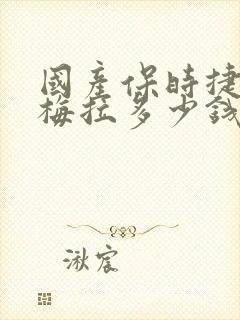 國產保時捷
梅拉多少錢
湫宸